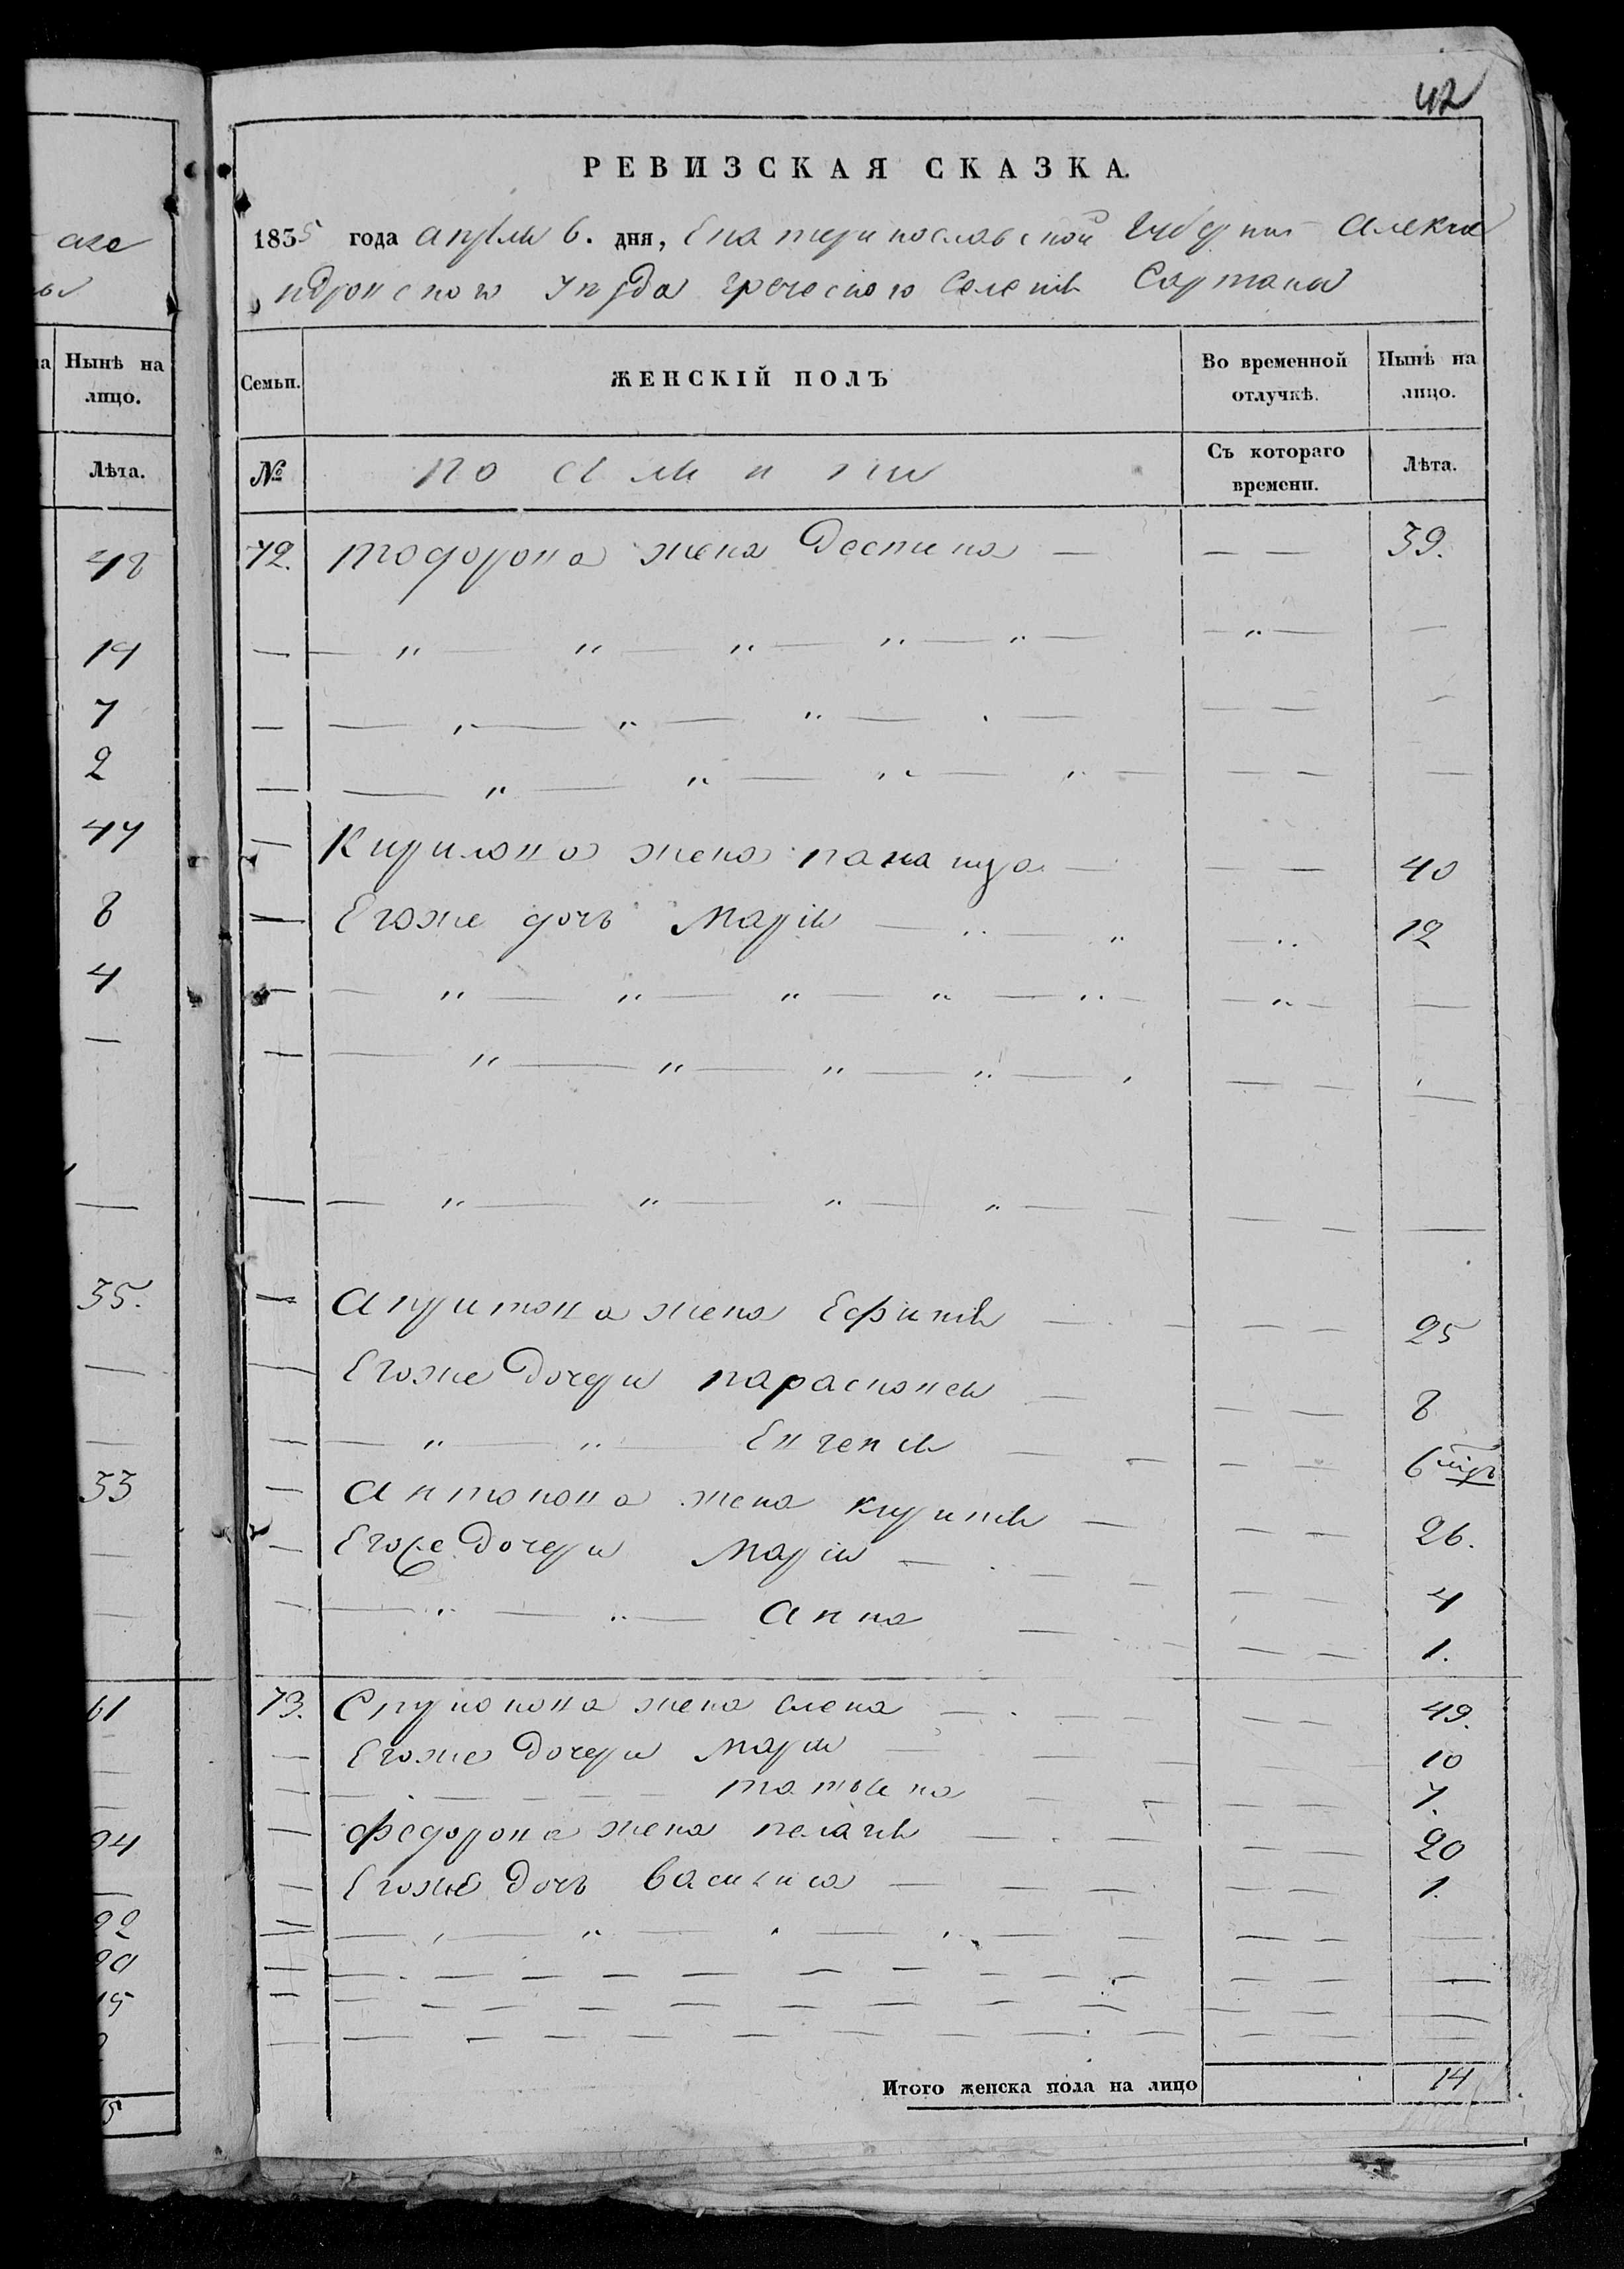 42
РЕВИЗСКАЯ СКАЗКА.
1835 года апреля 6. дня, Екатеринославской Губернии Алекса
ндровского уезда греческого Селения Сартана
аке
Нынѣ на лицо.
Семьи.
ЖЕНСКІЙ ПОЛЪ
Во временной отлучкѣ.
Нынѣ на лицо.
Лѣта.
№
Съ котораго времени.
Лѣта.
48
19
7
2
47
8
4
35.
33
61
72. тодорова жена Деспина — — — 39.
Кирилова жена — — 40
Егоже дочь Марія — 12
Харитова жена Ефимія — — 25
Егоже дочери парасковея — — 8
— " — " — Евгения — — 6
Антонова жена Кирикия — — 26.
Егоже дочери Марія — — 4
— " — " — Анна — — 1.
73. Спиридонова жена елена — — 49.
Егоже дочери Марія — — 10
татьяна — — 7.
Федорова жена пелагия — — 20
Егоже дочь василиса — — 1.
Итого женска пола на лицо 14